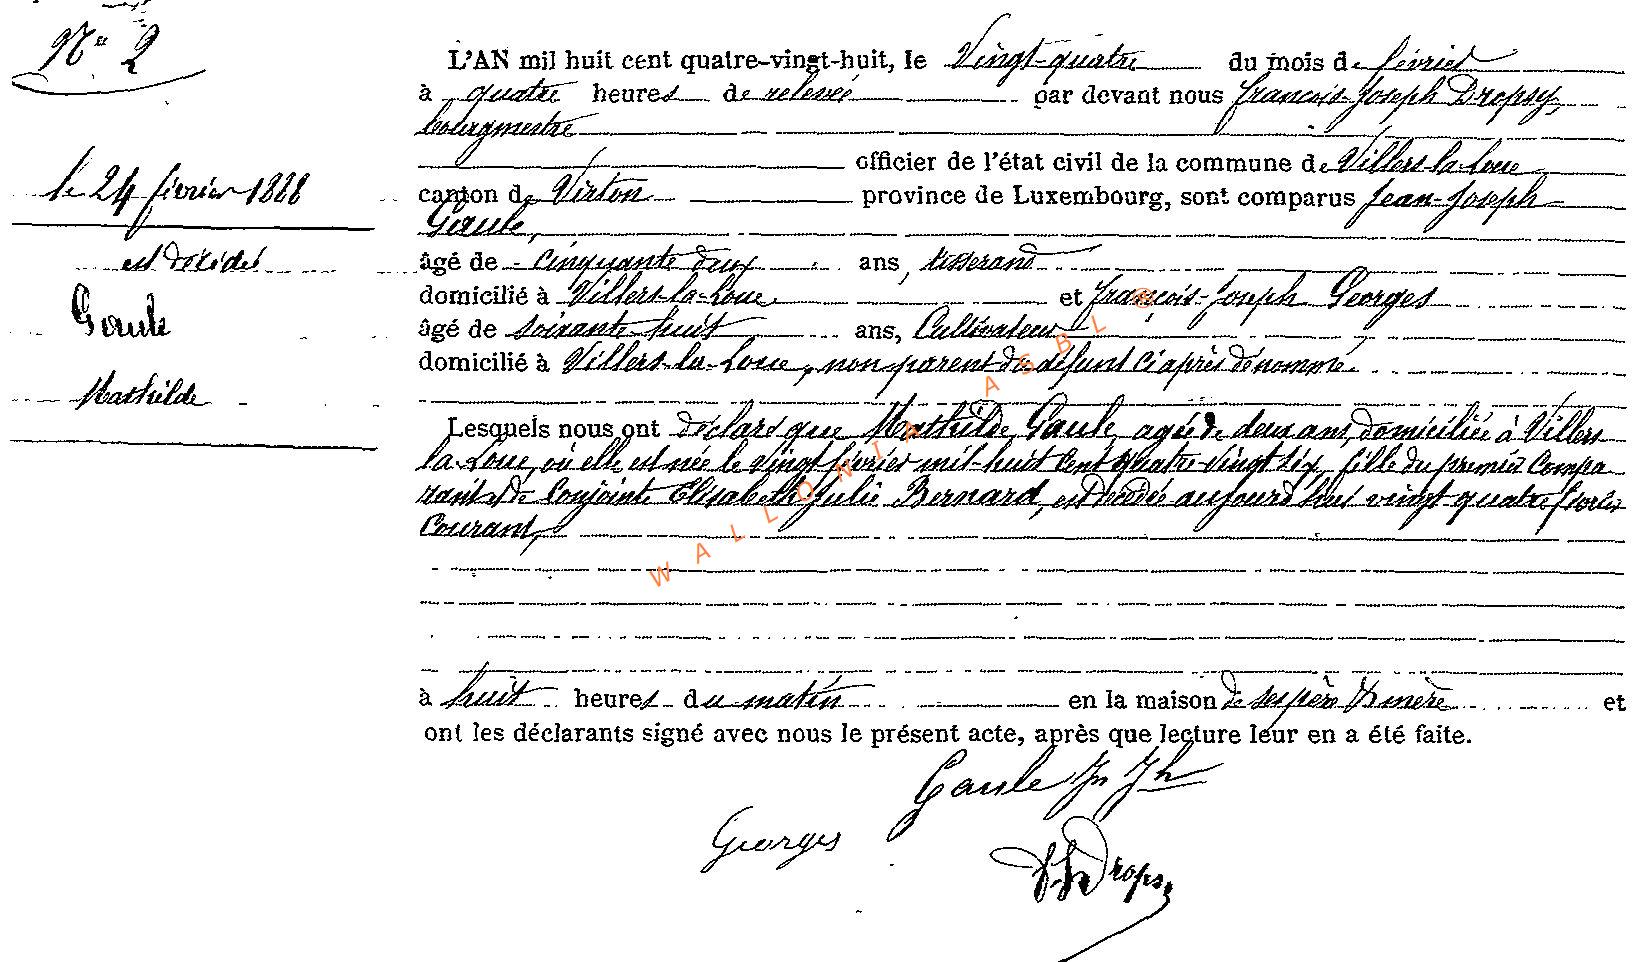 N° 2
le 24 février 1888
est décédée
Gaule
Mathilde
L'AN mil huit cent quatre-vingt-huit, le Vingt-quatre du mois de février
à quatre heures de relevée par devant nous François-Joseph Dropsy,
bourgmestre
officier de l'état civil de la commune de Villers-la-Loue
canton de Virton province de Luxembourg, sont comparus Jean-Joseph
Gaule,
âgé de cinquante deux ans, tisserand
domicilié à Villers-la-Loue et François-Joseph Georges
âgé de soixante-huit ans, Cultivateur
domicilié à Villers-la-Loue, non parent du défunt ci après dénommé.
Lesquels nous ont déclaré que Mathilde Gaule, agée de deux ans, domiciliée à Villers
la-Loue, où elle est née le vingt février mil-huit cent quatre vingt six, fille du premier compa
rant et de conjointe Elisabeth Julie Bernard, est décédée aujourd'hui vingt quatre février
courant,
à huit heures du matin en la maison de ses père & mère et
ont les déclarants signé avec nous le présent acte, après que lecture leur en a été faite.
Gaule Jn Jh
Georges
F J Dropsy
WALLONIA ASBL ©